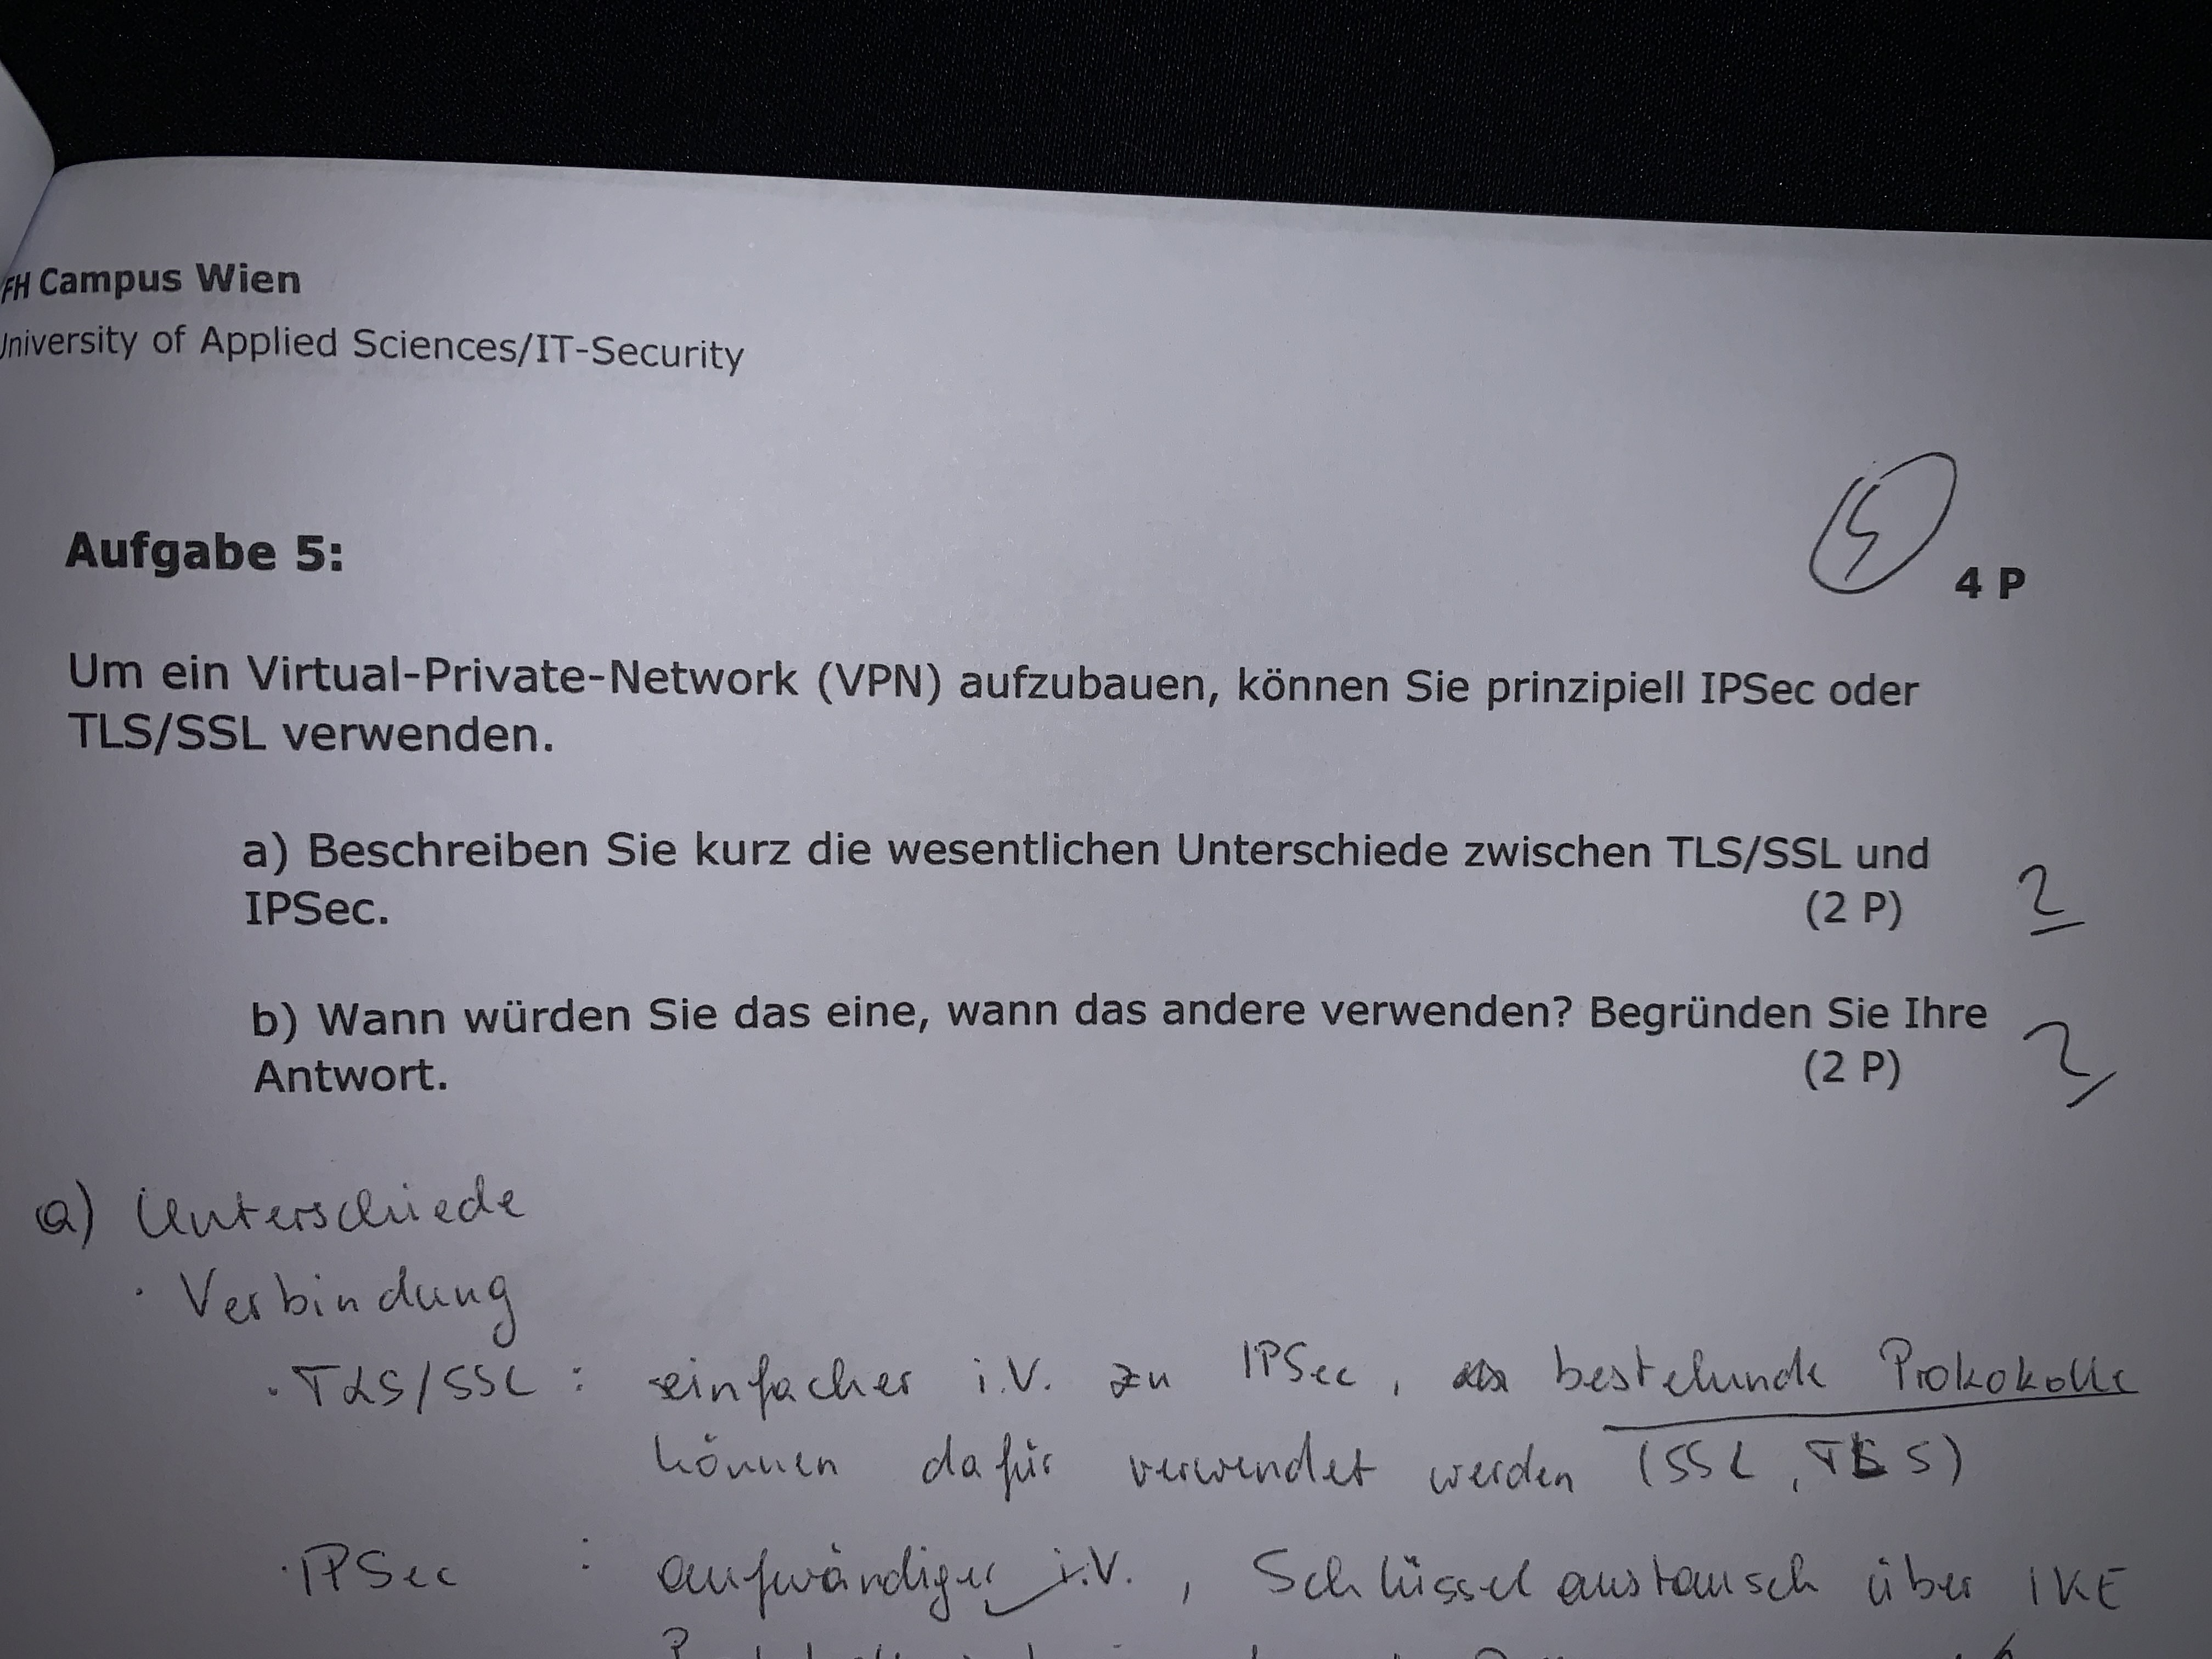 FH Campus Wien
University of Applied Sciences/IT-Security
4
Aufgabe 5:
4 P
Um ein Virtual-Private-Network (VPN) aufzubauen, können Sie prinzipiell IPSec oder
TLS/SSL verwenden.
a) Beschreiben Sie kurz die wesentlichen Unterschiede zwischen TLS/SSL und
IPSec. (2 P) 2
b) Wann würden Sie das eine, wann das andere verwenden? Begründen Sie Ihre
Antwort. (2 P) 2
a) Unterschiede
· Verbindung
· TLS/SSL : einfacher i.V. zu IPSec, bestehende Prokokolle
können dafür verwendet werden (SSL, TLS)
· IPSec : aufwändiger i.V., Schlüsselaustausch über IKE